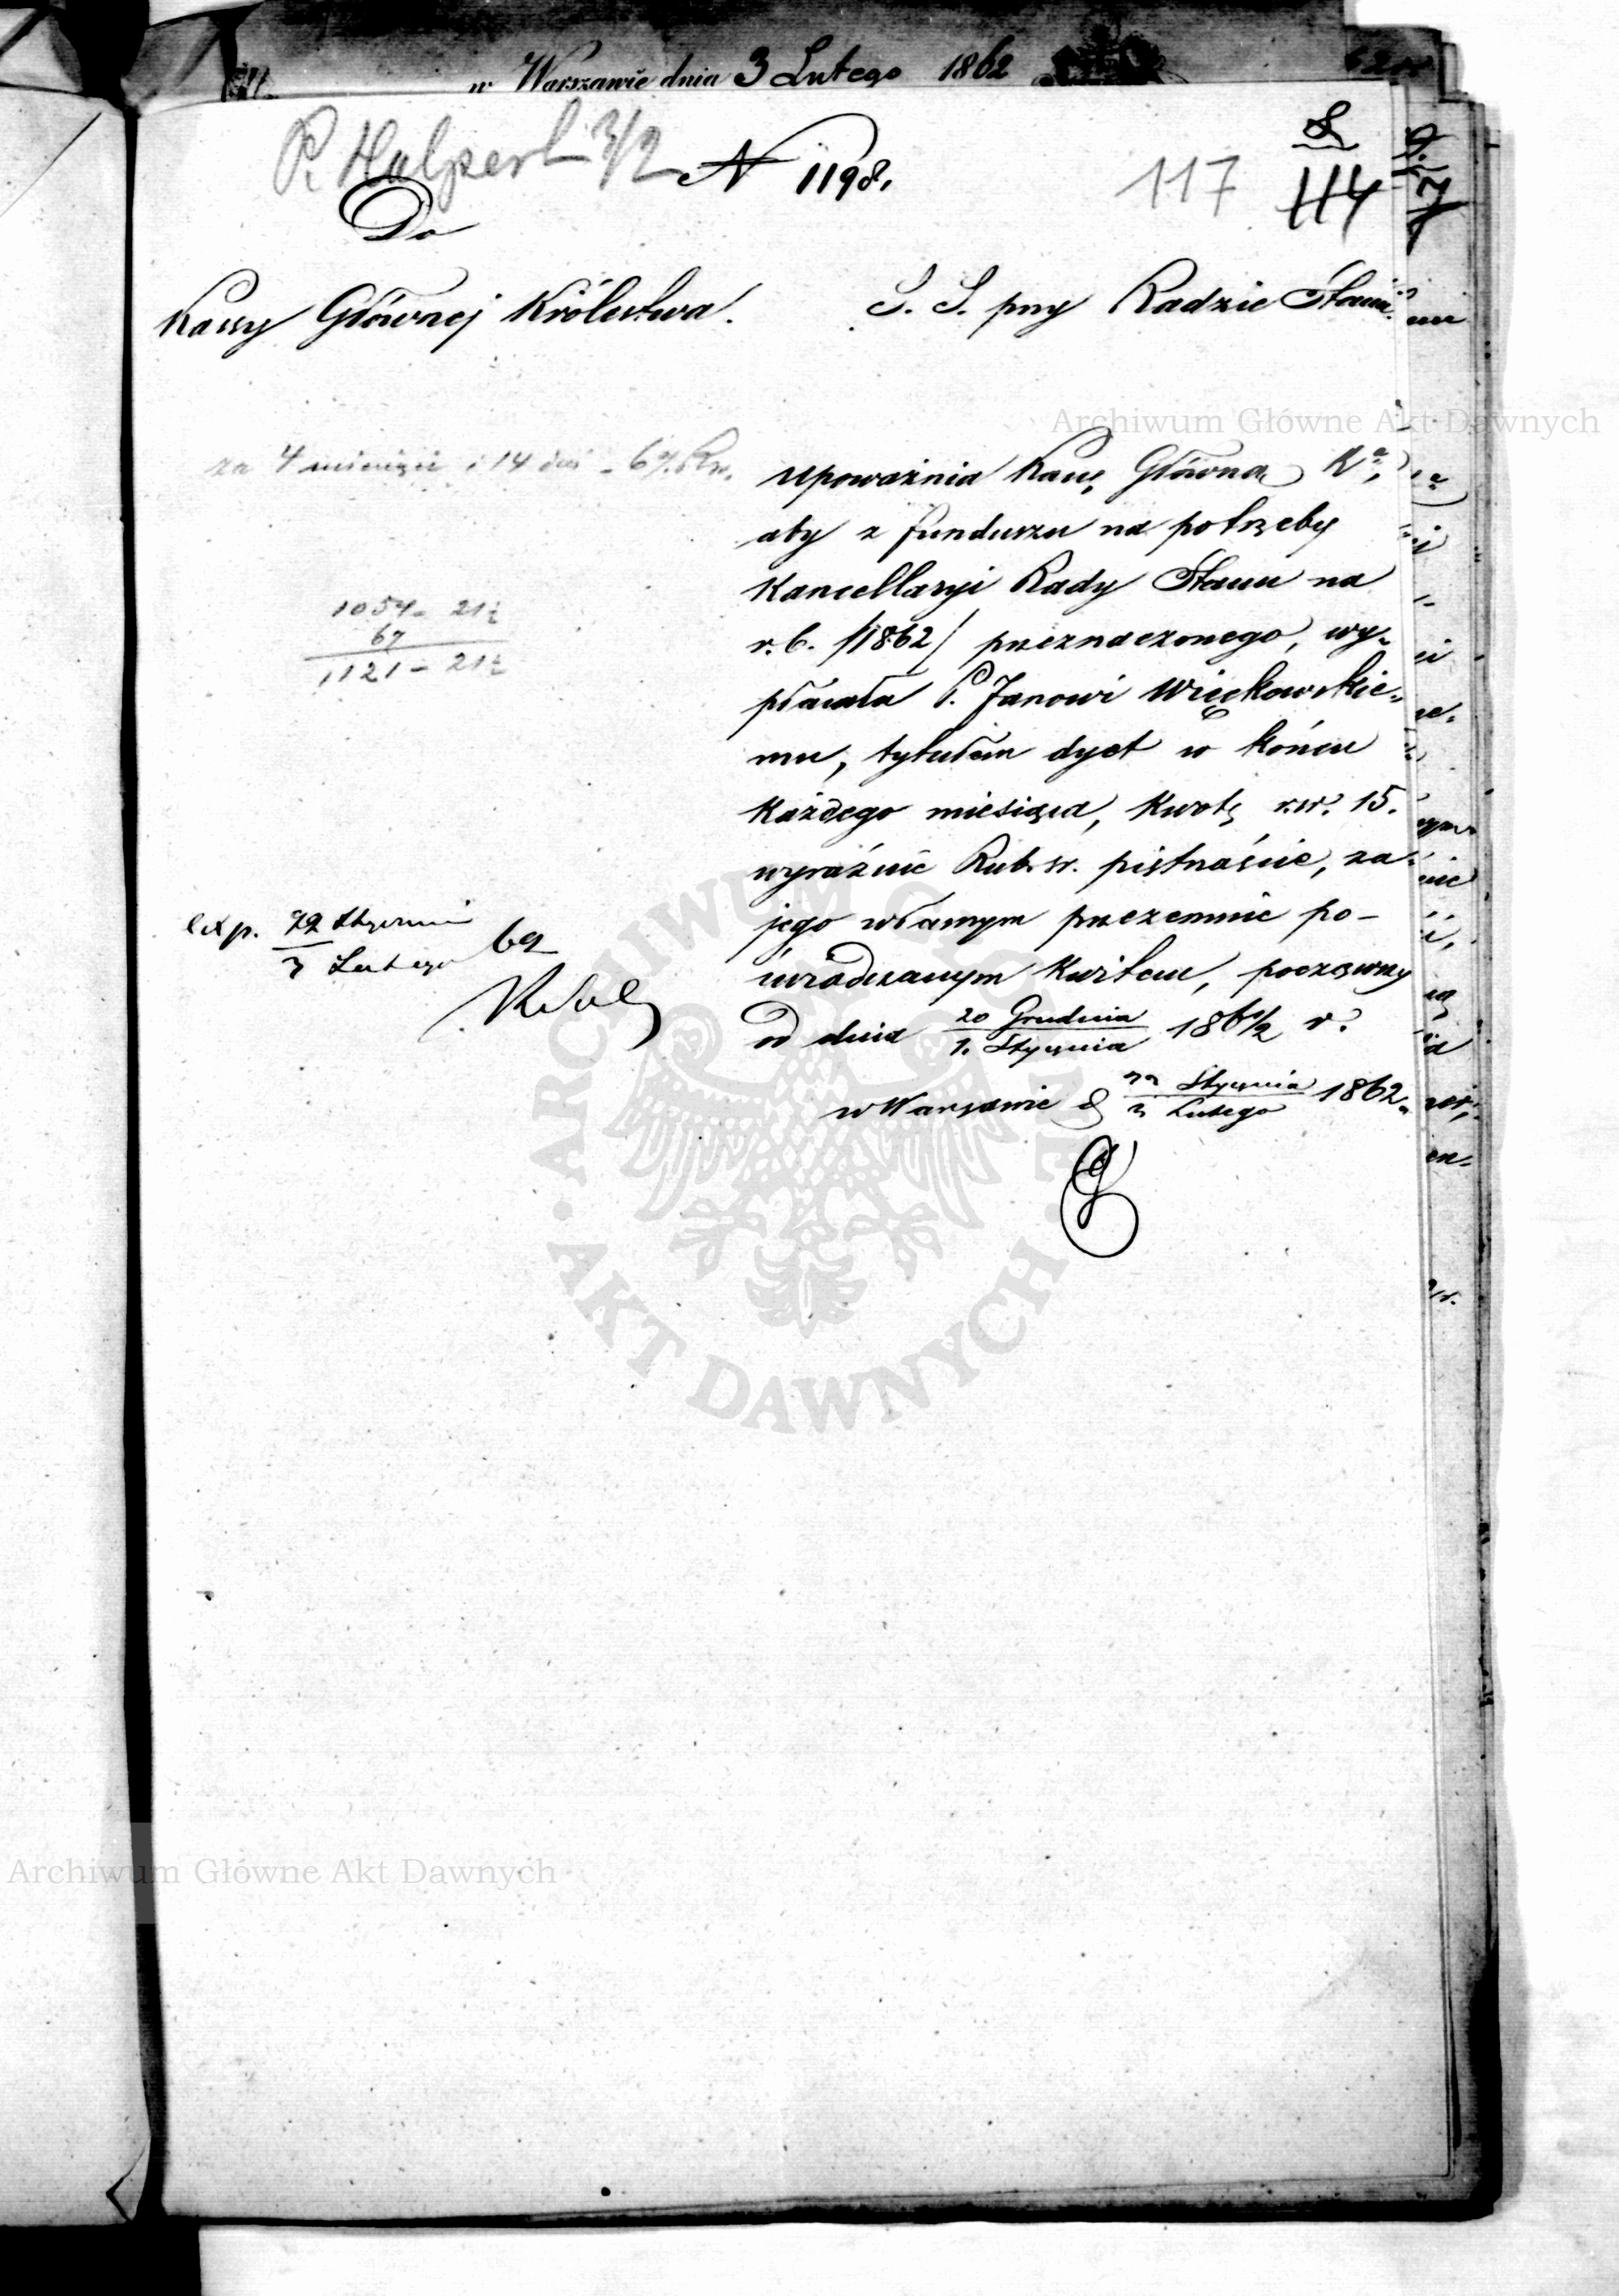 w Warszawie dnia 3 Lutego 1862
P. Halpert 3/2
N 1198.
117
114
Do
Kassy Głównej Królestwa.
S. S. przy Radzie Stanu
Archiwum Główne Akt Dawnych
za 4 miesiące i 14 dni - 67. Rsr.
1054 - 21½
67
1121 - 21½
upoważnia Kassę Główną Kª,
aby z funduszu na potrzeby
Kancellaryi Rady Stanu na
r. b. /1862/ przeznaczonego, wy-
płacała P. Janowi Więckowskie-
mu, tytułem dyet w końcu
każdego miesiąca, kwotę rsr. 15.
wyraźnie Rub. sr. piętnaście, za
jego własnym przezemnie po-
świadczanym kwitem, począwszy
od dnia 20 Grudnia / 1. Stycznia 1861/2 r.
w Warszawie d 22 Stycznia / 3 Lutego 1862.
Exp. 22 Stycznia / 3 Lutego 62
ARCHIWUM GŁÓWNE AKT DAWNYCH
Archiwum Główne Akt Dawnych